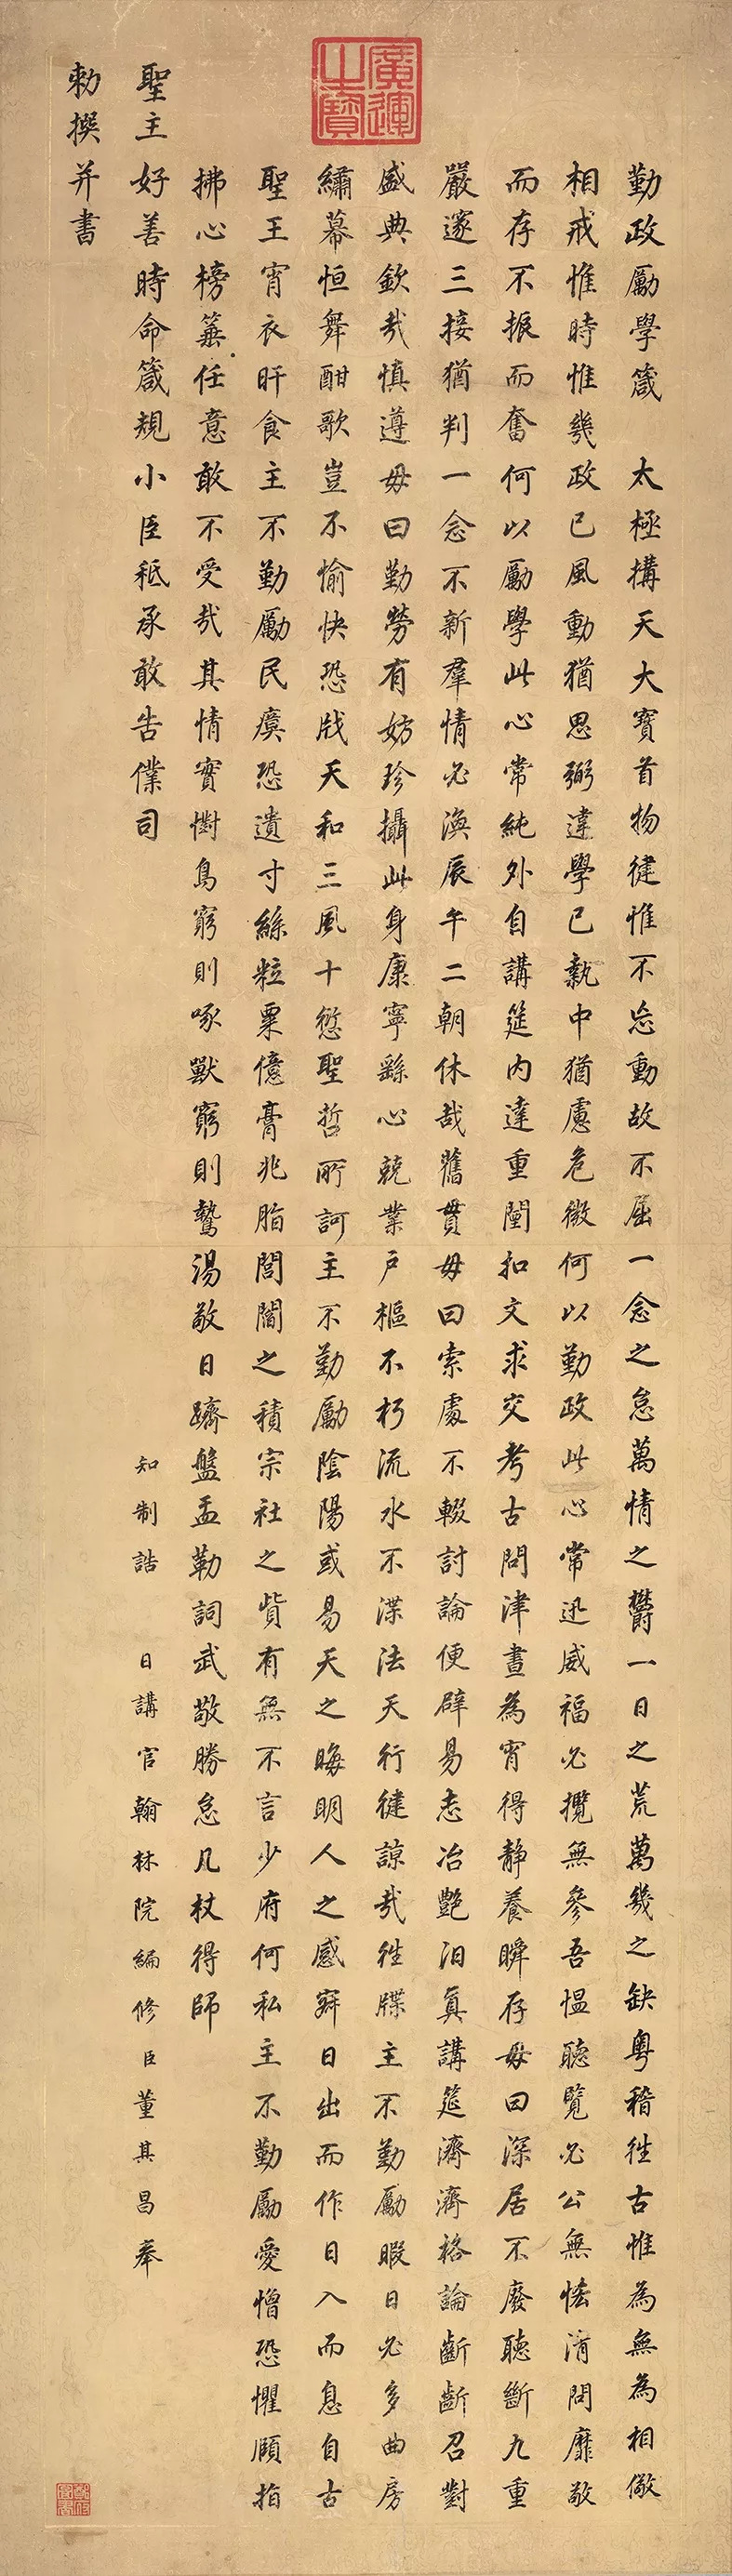 廣運之寶
勤政勵學箴 太極搆天大寶首物健惟不忘動故不屈一念之怠萬情之欝一日之荒萬幾之缺粵稽往古惟為無為相儆
相戒惟時惟幾政已風動猶思弼違學已執中猶慮危微何以勤政此心常迅威福必攬無參吾愠聽覽必公無恡清問靡敢
而存不振而奮何以勵學此心常純外自講筵內達重闈扣文求交考古問津晝為宵得靜養瞬存毋曰深居不廢聽斷九重
嚴邃三接猶判一念不新羣情必渙辰午二朝休哉舊貫毋曰索處不輟討論便辟易志冶艷汨真講筵濟濟格論齗齗召對
盛典欽哉慎遵毋曰勤勞有妨珍攝此身康寧繇心兢業戶樞不朽流水不渫法天行健諒哉往牒主不勤勵暇日必多曲房
繡幕恒舞酣歌豈不愉快恐戕天和三風十愆聖哲所訶主不勤勵陰陽或易天之晦明人之惑寐日出而作日入而息自古
聖王宵衣旰食主不勤勵民瘼恐遺寸絲粒粟億膏兆脂閭閻之積宗社之貲有無不言少府何私主不勤勵愛憎恐懼頤指
拂心榜箠任意敢不受哉其情實懟鳥窮則啄獸窮則鷙湯敬日躋盤盂勒詞武敬勝怠几杖得師
聖主好善時命箴規小臣秪承敢告僕司 知制誥 日講官翰林院編修臣董其昌奉
勅撰并書